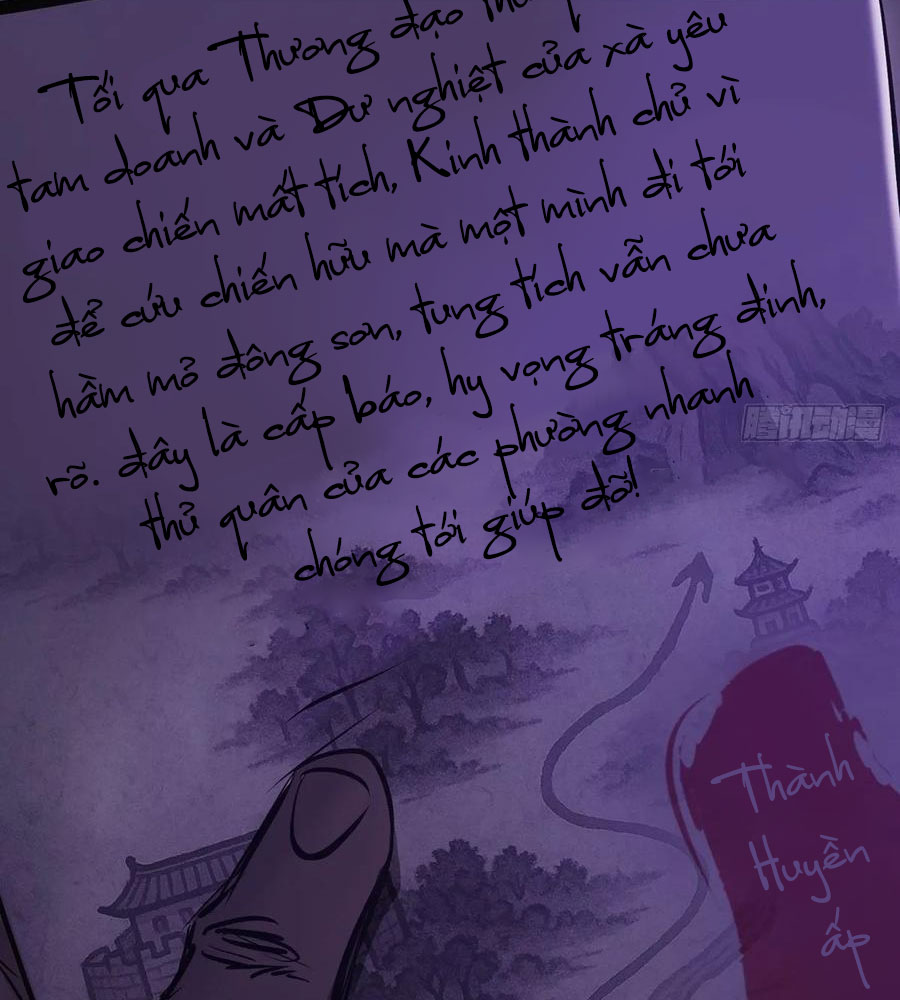 Tối qua Thương đạo
tam doanh và Dư nghiệt của xà yêu
giao chiến mất tích, Kinh thành chủ vì
để cứu chiến hữu mà một mình đi tới
hầm mỏ đông sơn, tung tích vẫn chưa
rõ. đây là cấp báo, hy vọng tráng đinh,
thủ quân của các phường nhanh
chóng tới giúp đỡ!
腾讯动漫
Thành
Huyền
ấp